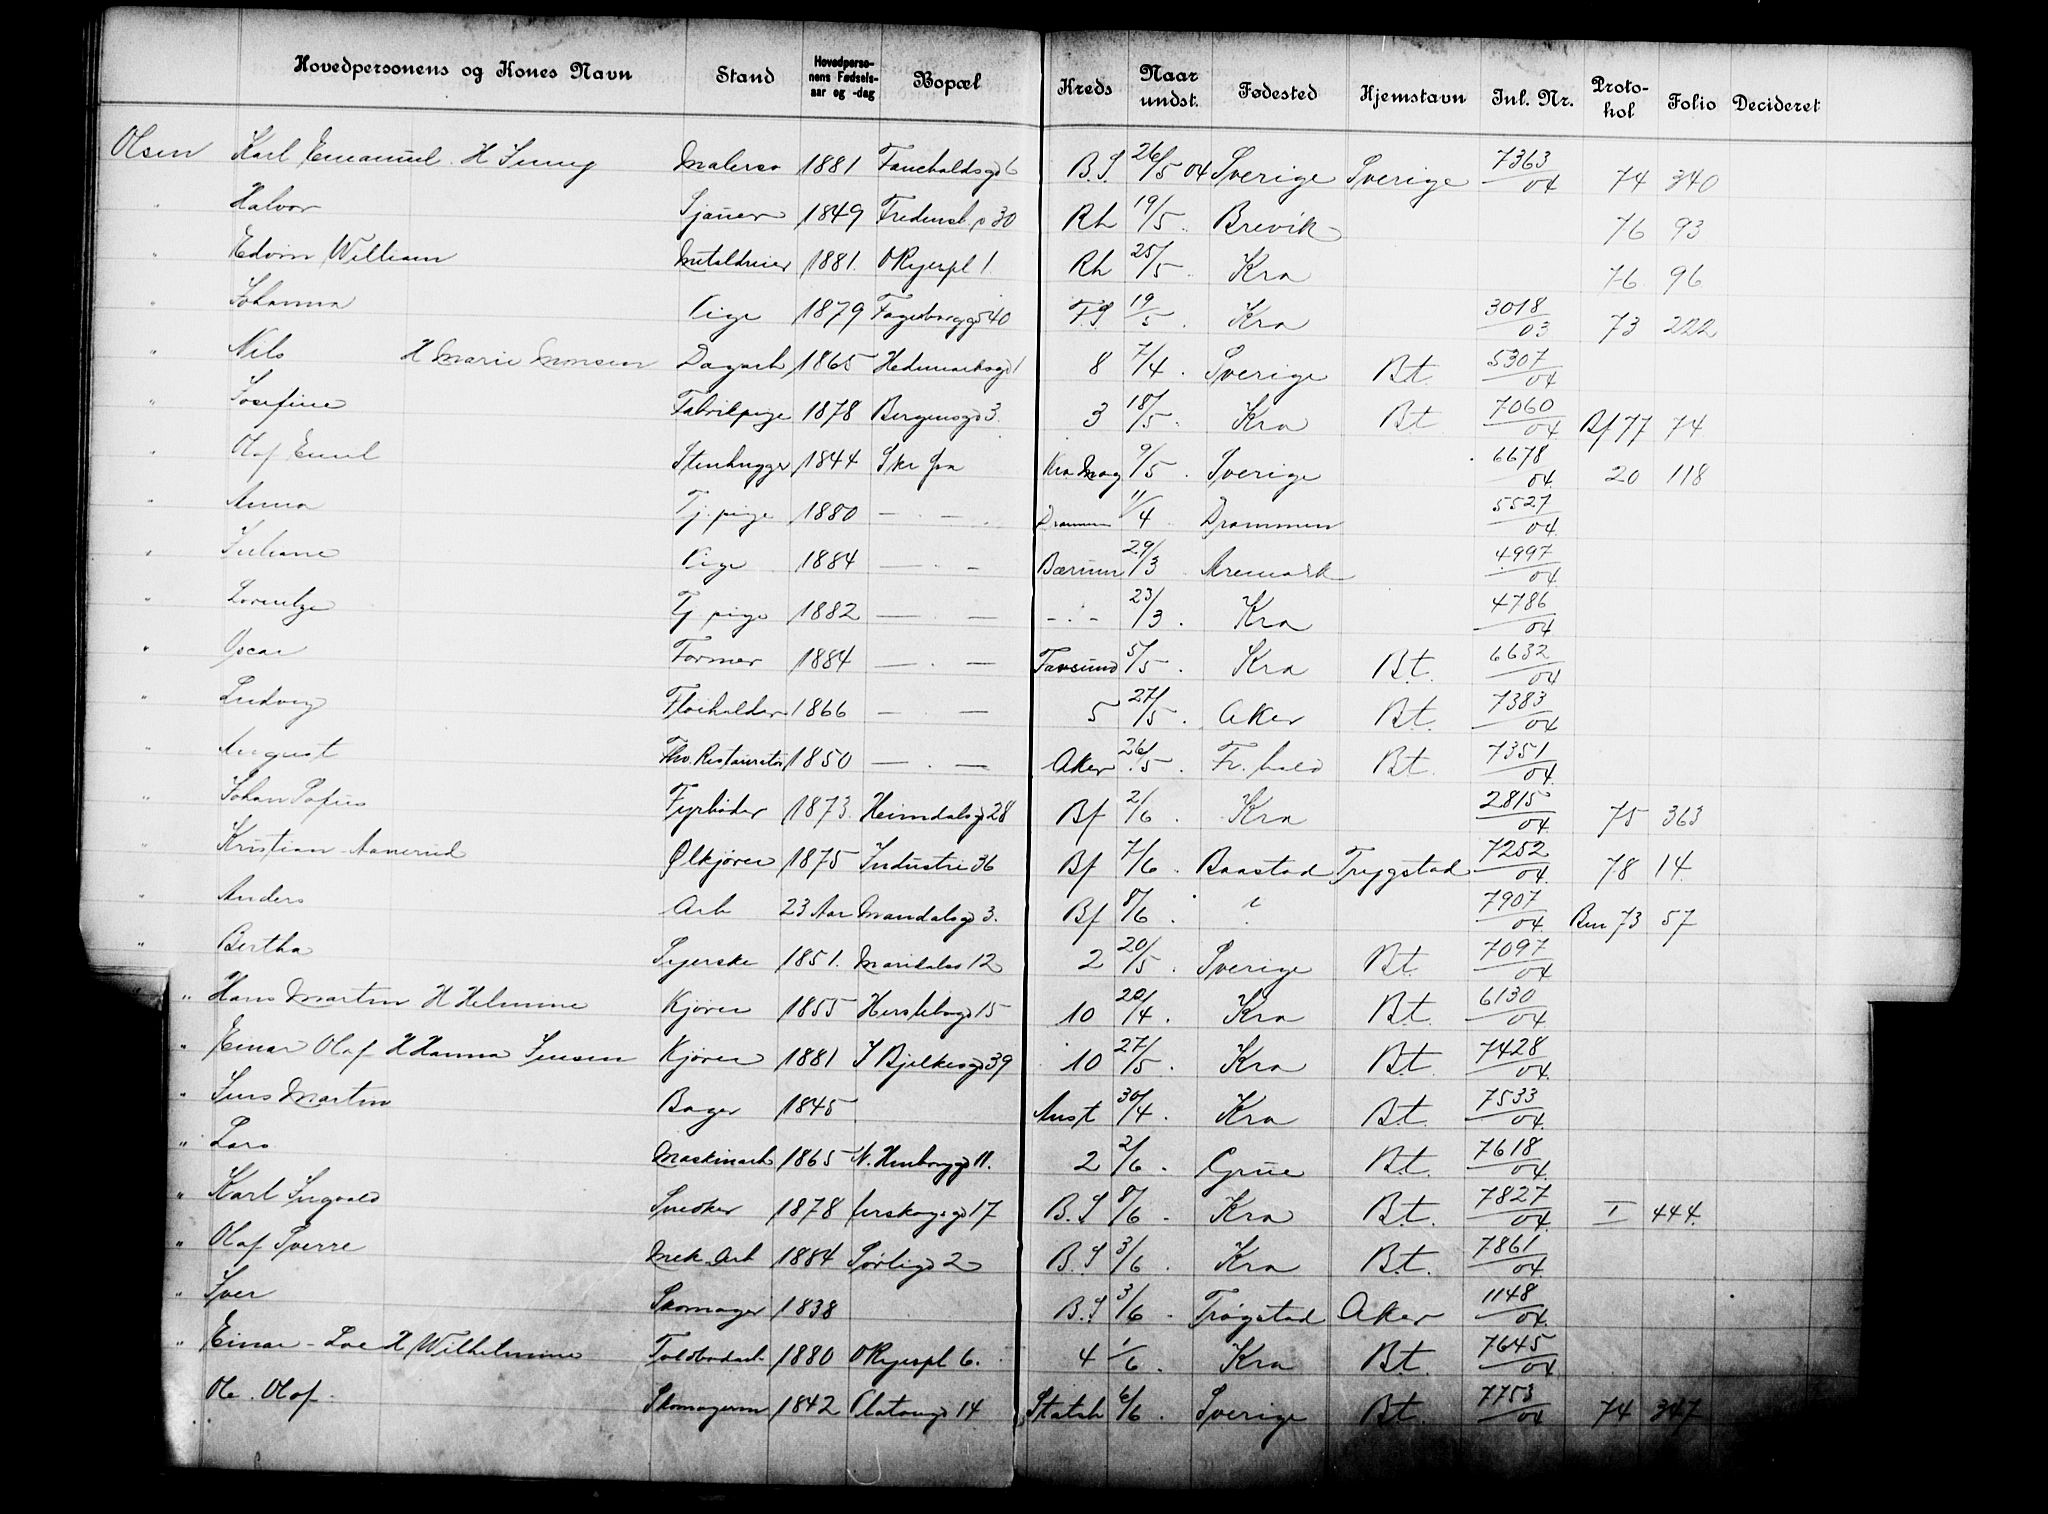 Hovedpersonens og Kones Navn Stand Hovedperso-nens Fødsels-aar og -dag Bopæl Kreds Naar undst. Fødested Hjemstavn Jnl. Nr. Proto-kol Folio Decideret
Olsen Karl Emanuel H Jenny Malersv 1881 6 B.S 26/5 04 Sverige Sverige 7363/04 74 340
" Halvor Sjauer 1849 Fredensb 30 Rh 19/5 . Brevik 76 93
" Edvin William Metaldreier 1881. O Ryespl 1. Rh 25/5 . Kra 76 96
" Johanna Pige 1879 Fageborggd 40 F.S 19/5 . Kra 3018/03 73 222
" Nils H Marie Monsen Dagarb 1865 Hedemarksgd 1 8 7/4 . Sverige Bt. 5307/04
" Josefine Fabrikpige 1878 Bergensgd 3. 3 18/5 . Kra Bt 7060/04 Bf 77 74
" Olaf Emil Stenhugger 1844 Kra Mag 9/5 . Sverige 6678/04. 20 118
" Anna Tj. pige 1880 — . — . Drammen 11/4 Drammen 5527/04.
" Juliane Pige 1884 — . — Bærum 29/3 . Aremark 4997/04.
" Tj pige 1882 — . — - . - 23/3 . Kra 4786/04
" Oscar Former 1884 — . — 5/5 . Kra Bt. 6632/04
" Ludvig 1866 — . — 5 27/5 . Aker Bt. 7383/04
" August Fhv. Restauratør 1850 — . — Aker 26/5 . Fr. hald Bt. 7351/04.
" Johan Fyrbøder 1873. Heimdalsgd 28 Bf 2/6 . Kra 2815/04. 75 363
" Kristian Aanerud Ølkjører 1875 Industri 36 Bf 7/6 . Baastad Trygstad 7252/04. 78 14.
" Anders Arb 23 Aar Mandalsgd 3. Bf 8/6 . ? 7907/04. Bm 73 57
" Bertha Syerske 1851. Maridalsv 12 2 20/5 . Sverige Bt. 7097/04
" Hans Martin H Helmine Kjører 1855 Herslebsgd 15 10 20/4 . Kra Bt. 6130/04
" Einar Olaf H Hanna Jensen Kjører 1881 J Bjelkesgd 39 10 27/5 . Kra Bt. 7428/04.
" Jens Martin Bager 1845 Anst 30/4 . Kra Bt. 7533/04.
" Lars Maskinarb 1865 11. 2 2/6 . Grue Bt. 7618/04.
" Karl Ingvald Snedker 1878 17 B.S 8/6 . Kra Bt. 7827/04. I 444.
" Olaf Sverre Mek. Arb 1884 Sørligd 2 B.S 3/6 . Kra Bt. 7861/04.
" Iver Skomager 1838 B.S 3/6 . Trøgstad Aker 1148/04.
" Einar - H Wilhelmine Toldbodarb. 1880 O Ryespl 6. 4 1/6 . Kra Bt. 7645/04.
Ole Olaf. Skomagerm 1842 14 6/6 . Sverige Bt. 7753/04 74 347